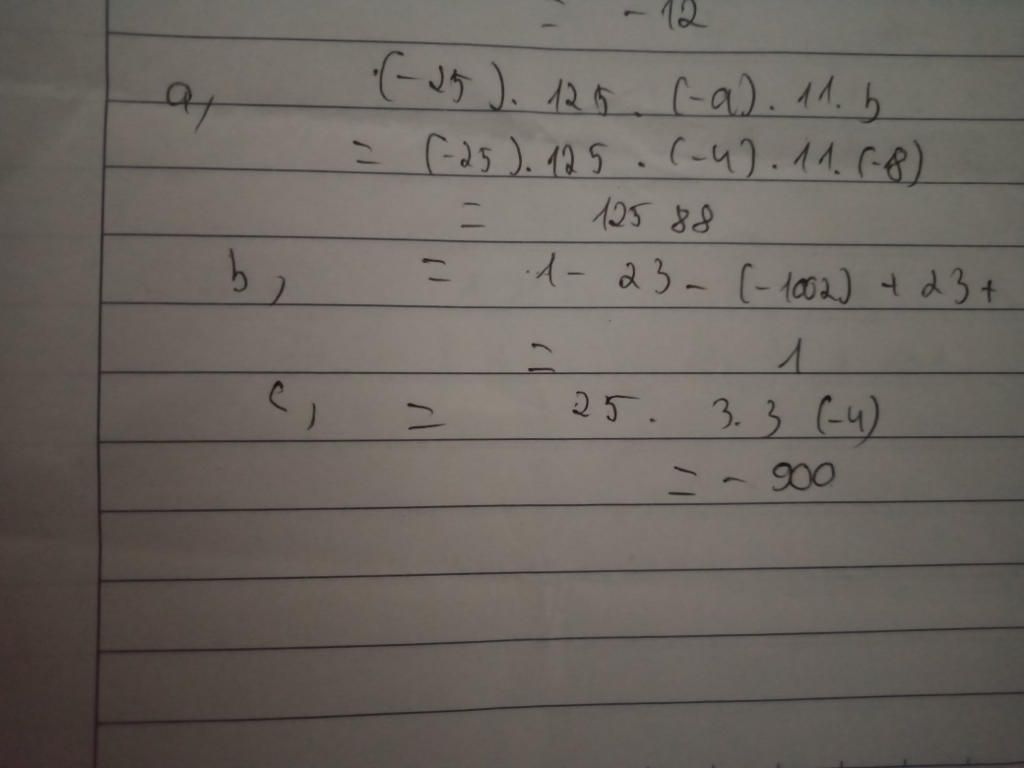 = -12
a, (-25). 125. (-a). 11. b
= (-25). 125. (-4). 11. (-8)
= 125 88
b, = 1 - 23 - (-1002) + 23 +
= 1
c, = 25. 3. 3 (-4)
= - 900